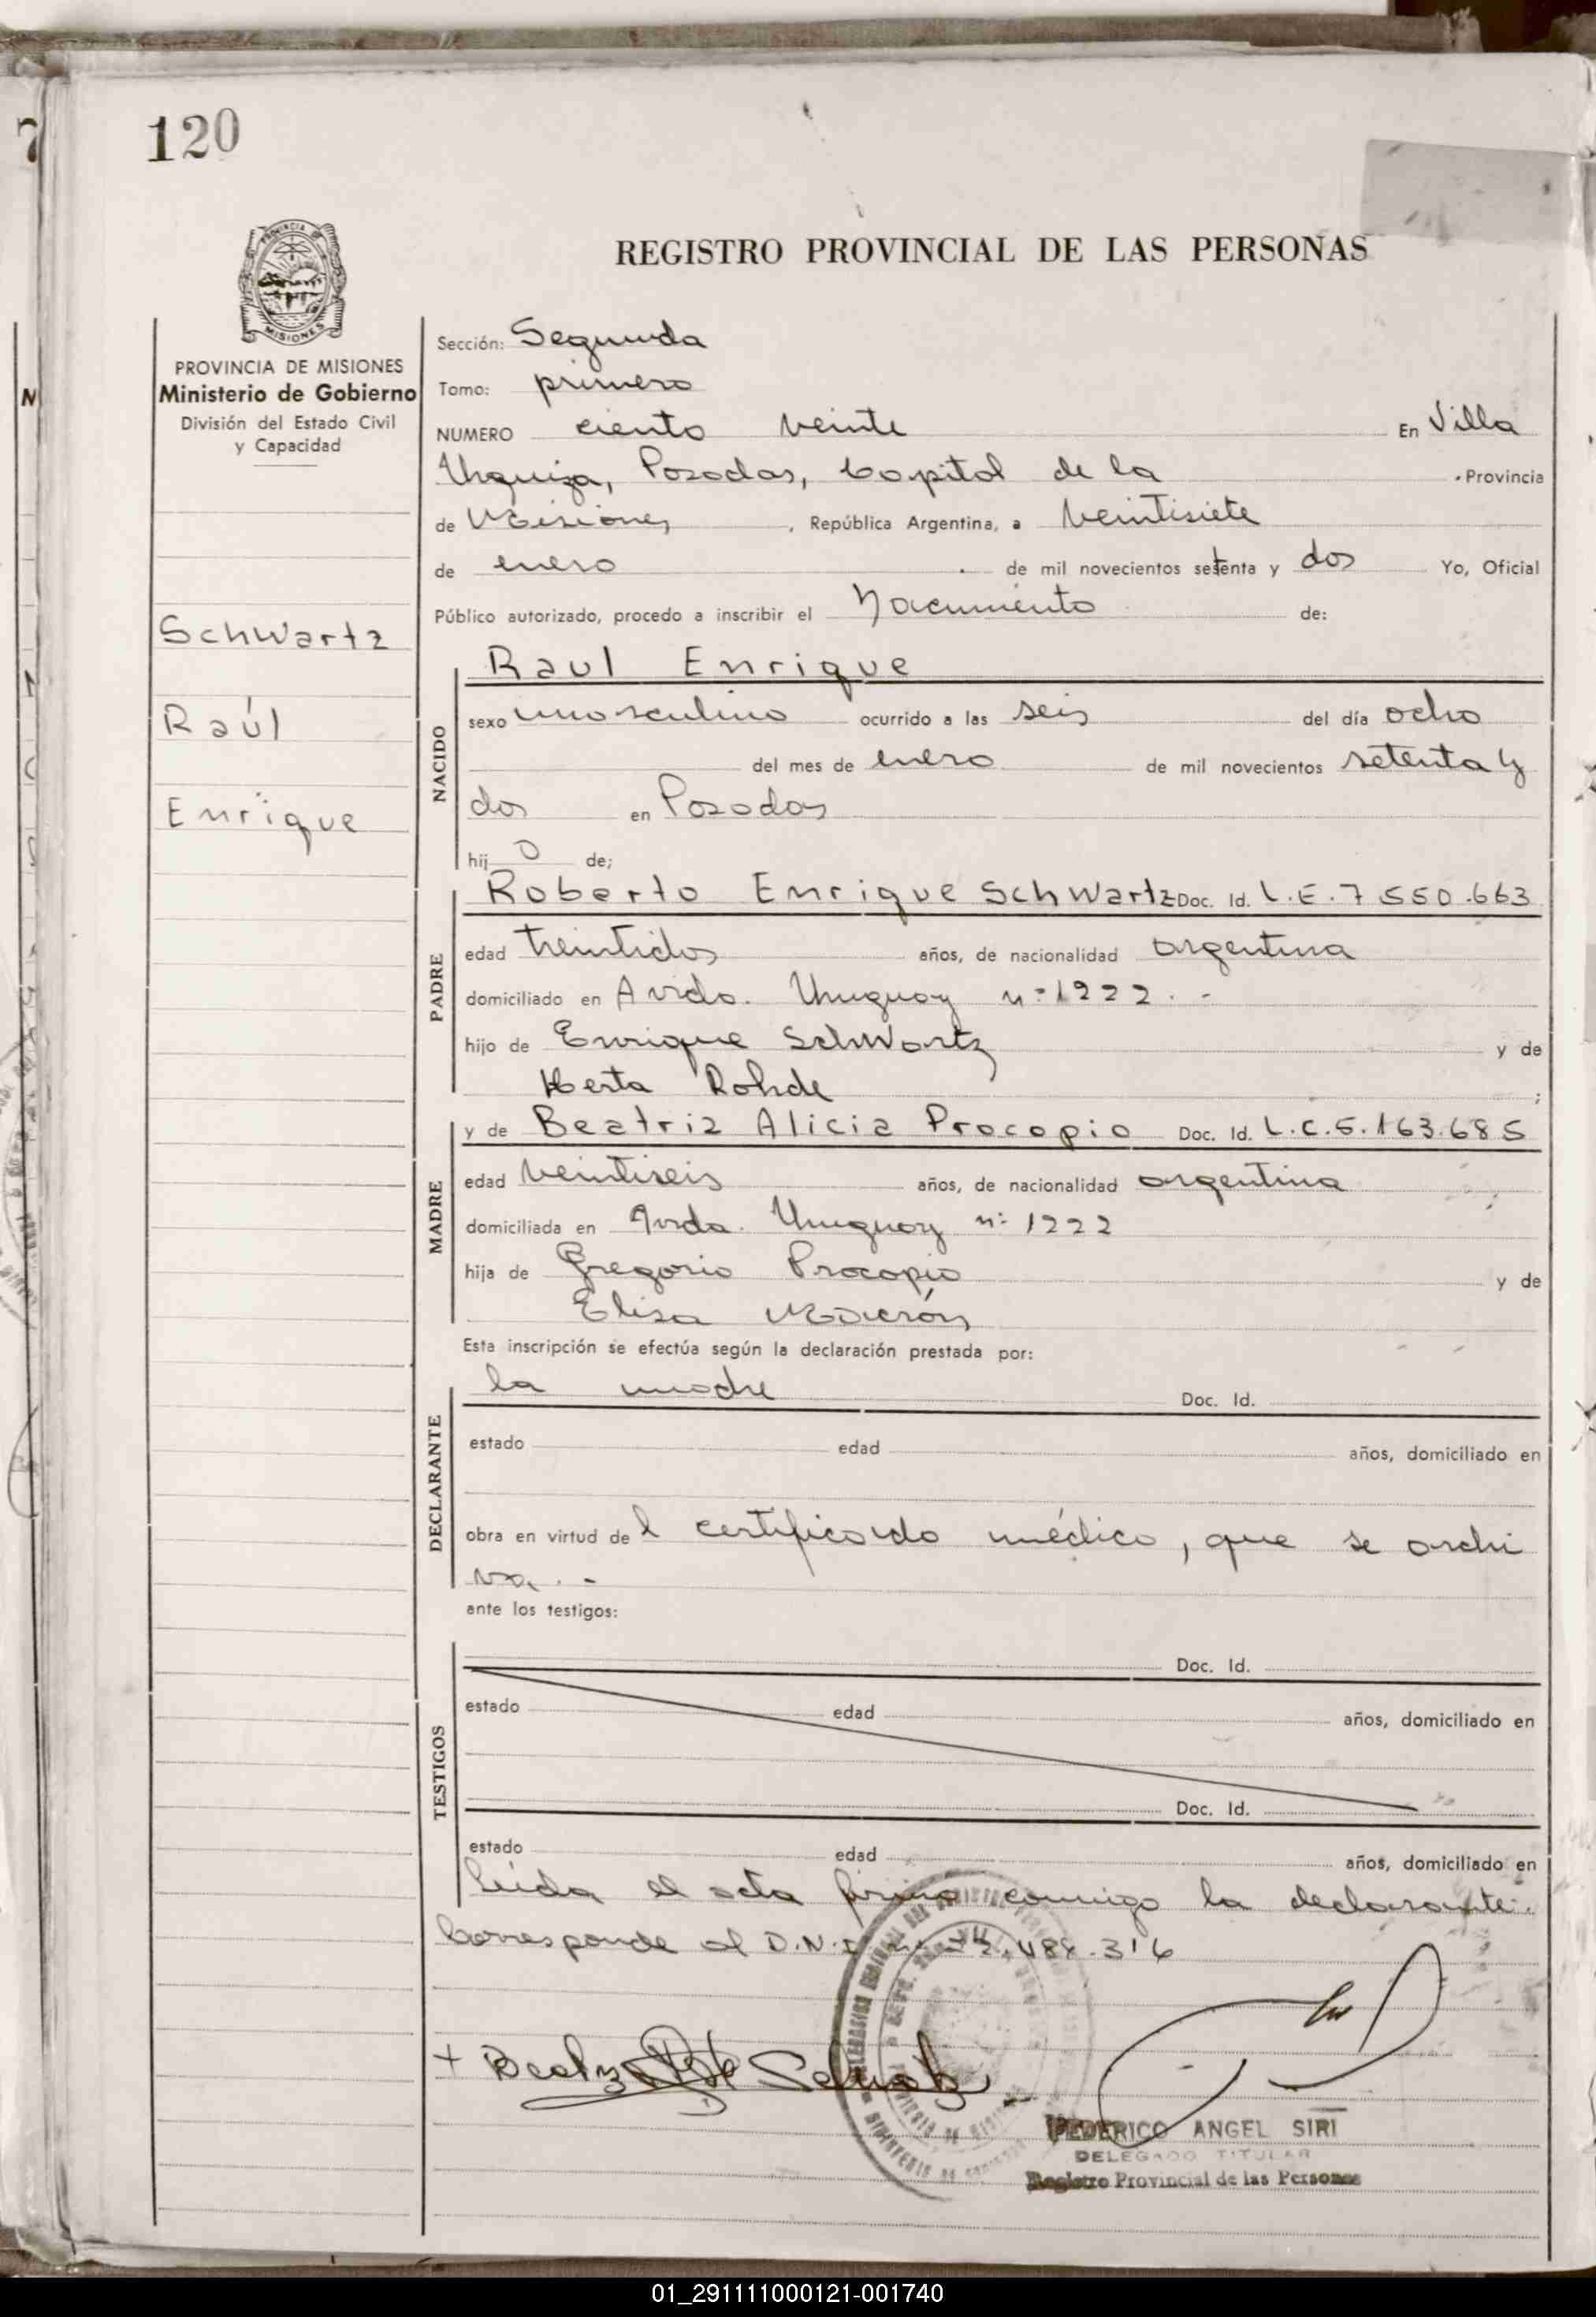 120
REGISTRO PROVINCIAL DE LAS PERSONAS
PROVINCIA DE MISIONES
Ministerio de Gobierno
División del Estado Civil
y Capacidad
Schwartz
Raúl
Enrique
Sección: Segunda
Tomo: primero
NUMERO ciento veinte En Villa
Urquiza, Posadas, Capital de la Provincia
de Misiones, República Argentina, a veintisiete
de enero de mil novecientos setenta y dos Yo, Oficial
Público autorizado, procedo a inscribir el Nacimiento de:
NACIDO
Raul Enrique
sexo masculino ocurrido a las seis del día ocho
del mes de enero de mil novecientos setenta y
dos en Posadas
hijo de;
PADRE
Roberto Enrique Schwartz Doc. Id. L.E. 7.550.663
edad treintidos años, de nacionalidad argentina
domiciliado en Avda. Uruguay nº 1222. -
hijo de Enrique Schwartz y de
Herta Rohde ;
MADRE
y de Beatriz Alicia Procopio Doc. Id. L.C. 5.163.685
edad veintiseis años, de nacionalidad argentina
domiciliada en Avda. Uruguay nº 1222
hija de Gregorio Procopio y de
Elisa
Esta inscripción se efectúa según la declaración prestada por:
DECLARANTE
la madre Doc. Id.
estado edad años, domiciliado en
obra en virtud del certificado médico, que se archi
va. -
ante los testigos:
TESTIGOS
Doc. Id.
estado edad años, domiciliado en
Doc. Id.
estado edad años, domiciliado en
Leída el acta firma conmigo la declarante.
Corresponde al D.N.I.
FEDERICO ANGEL SIRI
DELEGADO TITULAR
Registro Provincial de las Personas
01_291111000121-001740